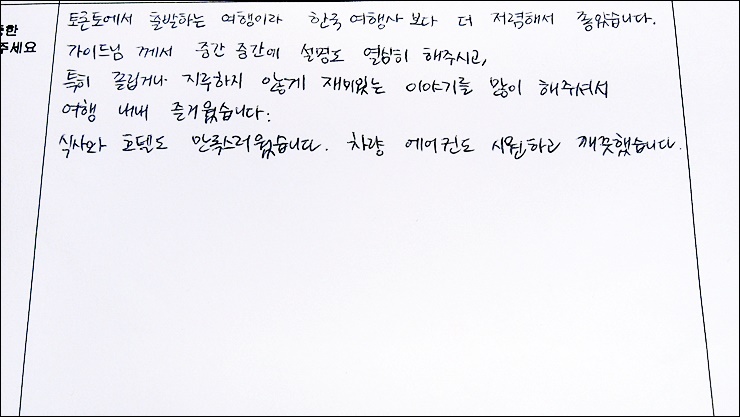 한
주세요
토론토에서 출발하는 여행이라 한국 여행사 보다 더 저렴해서 좋았습니다.
가이드님 께서 중간 중간에 설명도 열심히 해주시고,
특히 졸립거나 지루하지 않게 재미있는 이야기를 많이 해주셔서
여행 내내 즐거웠습니다.
식사와 호텔도 만족스러웠습니다. 차량 에어컨도 시원하고 깨끗했습니다.